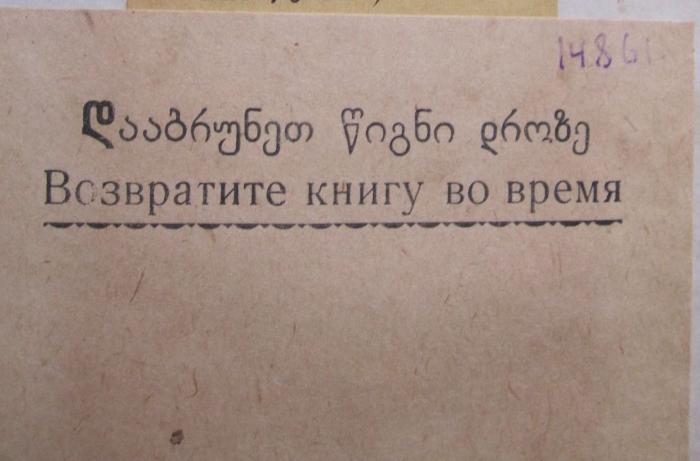 14861
დააბრუნეთ წიგნი დროზე
Возвратите книгу во время